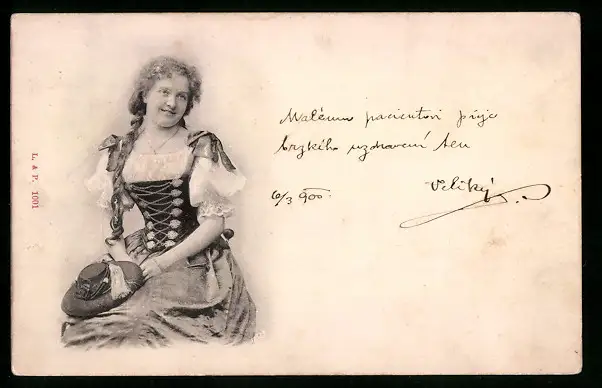 Malému pacientovi přeje
brzkého uzdravení ten
Veliký
6/3 900
L. & P. 1001